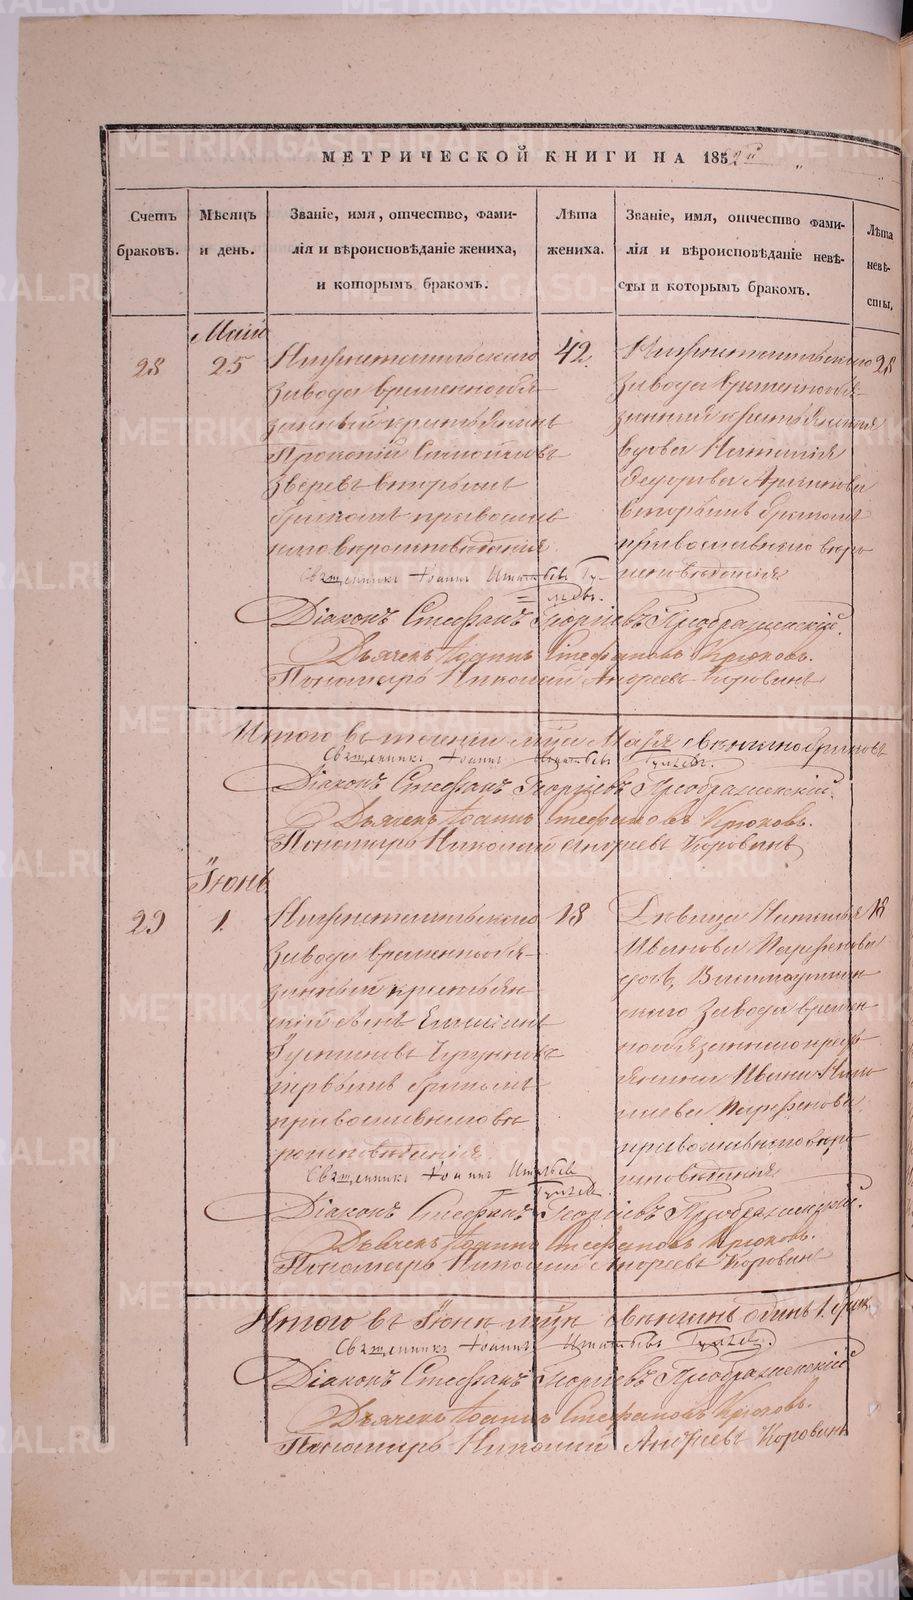 МЕТРИЧЕСКОЙ КНИГИ НА 1852й
Счетъ браковъ.
Мѣсяцъ и день.
Званіе, имя, отчество, фами-
лія и вѣроисповѣданіе жениха,
и которымъ бракомъ.
Лѣта жениха.
Званіе, имя, отчество фами-
лія и вѣроисповѣданіе невѣ-
сты и которымъ бракомъ.
Лѣта невѣ-
сты.
Май
28
25
Нижнетагильскаго
завода временнообя-
занный крестьянинъ
Прокопій Самойловъ
Зверевъ вторымъ
бракомъ православ
наго вѣроисповѣданія
42.
Нижнетагильскаго
завода временнообя-
занная крестьянская
вдова Наталія
Федорова
вторымъ бракомъ
православнаго вѣро
исповѣданія
28
Священникъ Іоаннъ Игнатьевъ
Діаконъ Стефанъ Георгіевъ Преображенскій.
Дьячекъ Іоаннъ Стефановъ Крюковъ.
Пономарь Николай Андреевъ Коровинъ
Итого въ теченіи мца Маія браковъ
Священникъ Іоаннъ Игнатьевъ
Діаконъ Стефанъ Георгіевъ Преображенскій.
Дьячекъ Іоаннъ Стефановъ Крюковъ.
Пономарь Николай Андреевъ Коровинъ
Іюнь
29
1.
Нижнетагильскаго
завода временнообя-
занный крестьян
скій сынъ
первымъ бракомъ
православнаго вѣ
роисповѣданія
18
Дѣвица Наталья
Иванова Парфенова
дочь,
скаго завода времен
нообязаннаго крест
янина Ивана
Парфенова
православнаго вѣро
исповѣданія
18
Священникъ Іоаннъ Игнатьевъ
Діаконъ Стефанъ Георгіевъ Преображенскій.
Дьячекъ Іоаннъ Стефановъ Крюковъ.
Пономарь Николай Андреевъ Коровинъ
Итого въ Іюнѣ мцѣ свѣнчанъ одинъ 1. бракъ
Священникъ Іоаннъ Игнатьевъ
Діаконъ Стефанъ Георгіевъ Преображенскій
Дьячекъ Іоаннъ Стефановъ Крюковъ.
Пономарь Николай Андреевъ Коровинъ
METRIKI.GASO-URAL.RU